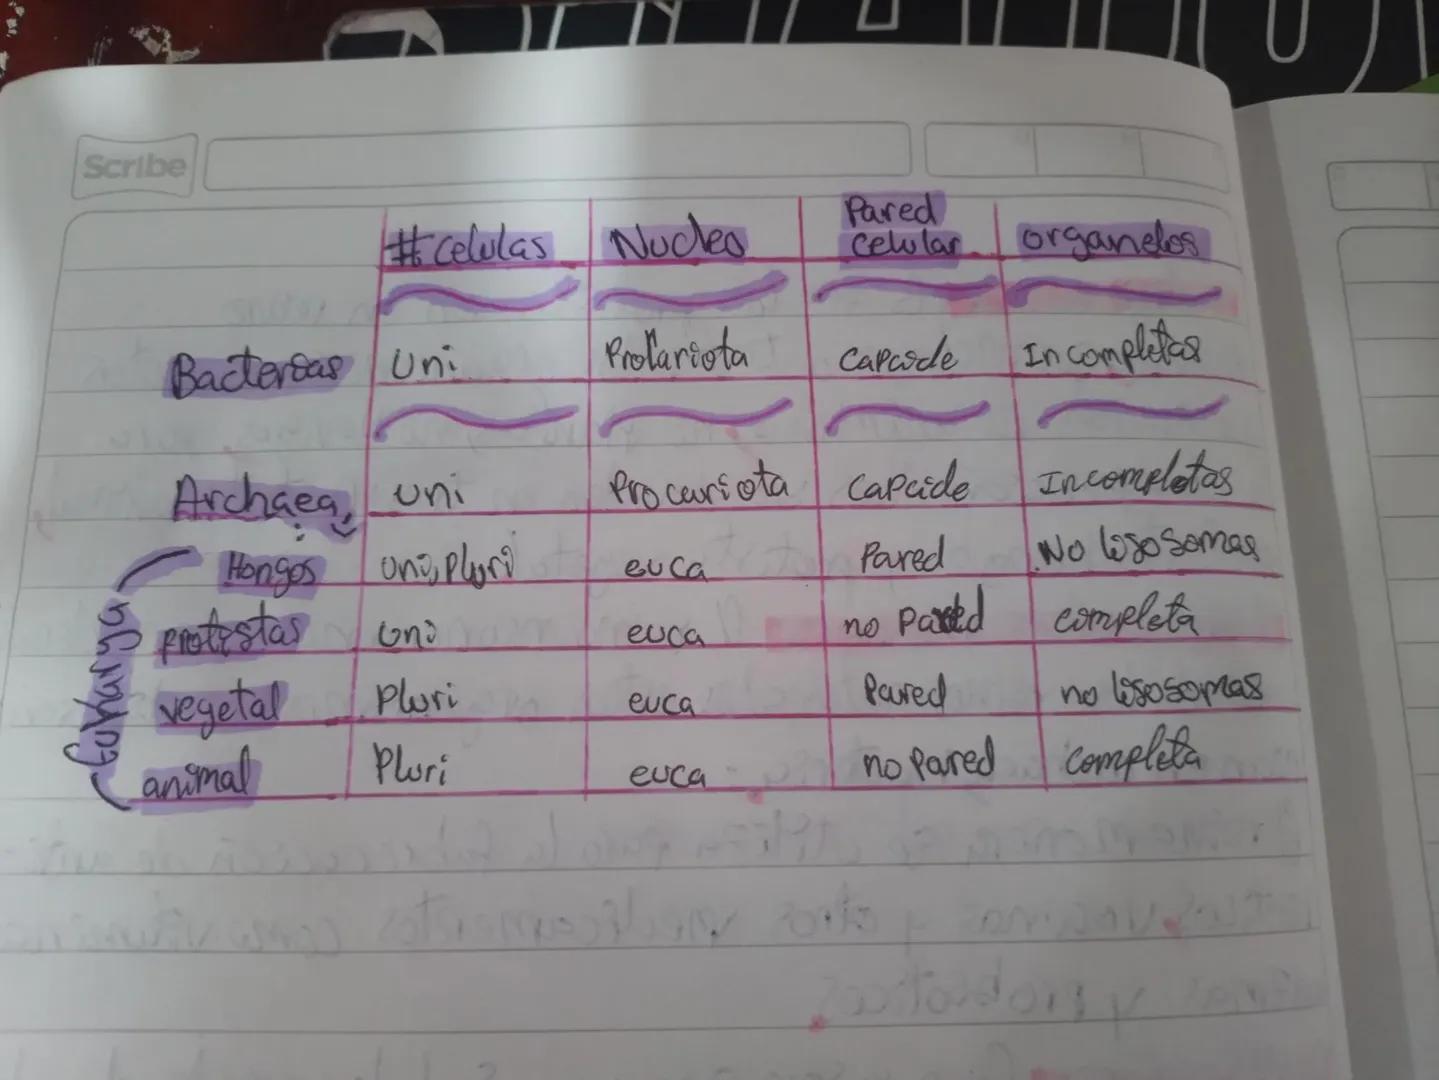 Scribe
#celulas Nucleo Pared celular organelos
Bacterias Uni Procariota Capcide Incompletas
Archaea uni Procariota Capcide Incompletas
Eukarya
Hongos Uni, Pluri euca Pared No lisosomas
protistas uni euca no pared completa
vegetal Pluri euca Pared no lisosomas
animal Pluri euca no pared completa